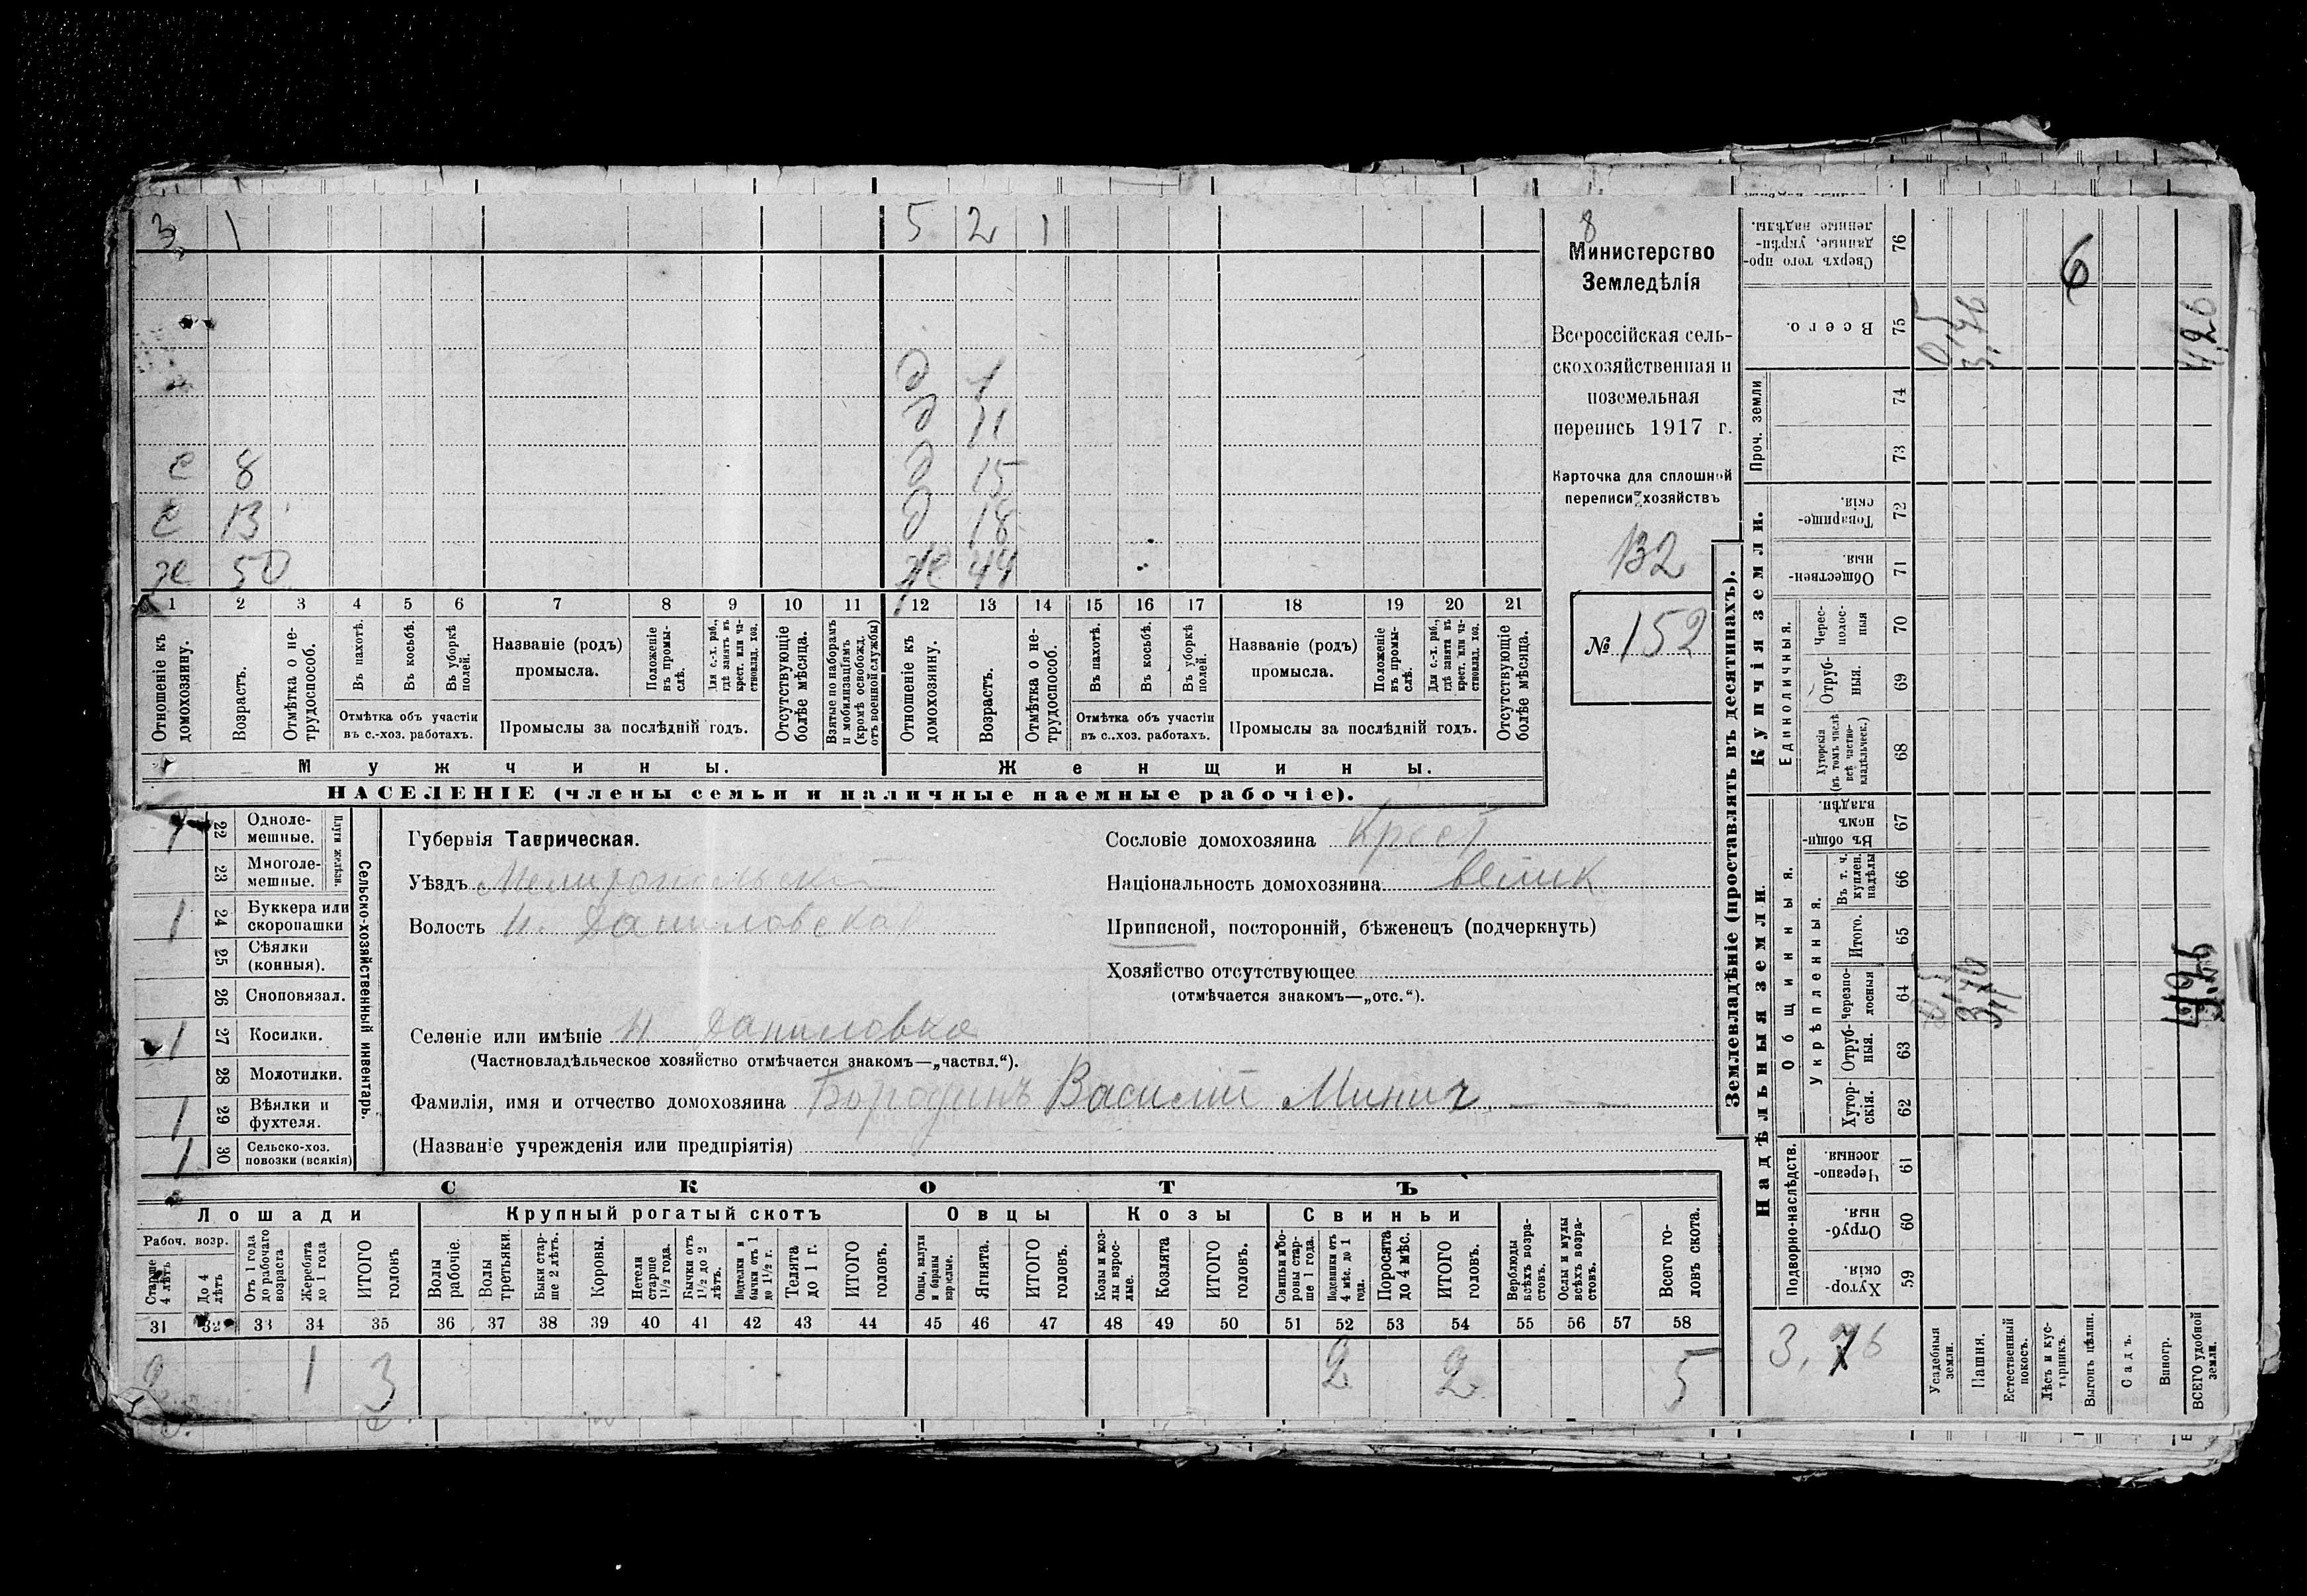 3 1 5 2 1
8
Министерство
Земледѣлія
Всероссійская сель-
скохозяйственная и
поземельная
перепись 1917 г.
Карточка для сплошной
переписи хозяйствъ
132
№ 152
д 1
д 11
с 8 д 15
с 13 д 18
же 50 же 44
1 2 3 4 5 6 7 8 9 10 11 12 13 14 15 16 17 18 19 20 21
Отношеніе къ домохозяину.
Возрастъ.
Отмѣтка о не-трудоспособ.
Въ пахотѣ.
Въ косьбѣ.
Въ уборкѣ полей.
Отмѣтка объ участіи
въ с.-хоз. работахъ.
Названіе (родъ)
промысла.
Положеніе въ промы-слѣ.
Для с.-х. раб., гдѣ занятъ въ крест. или ча-стновлад. хоз.
Промыслы за послѣдній годъ.
Отсутствующіе болѣе мѣсяца.
Взятые по наборамъ и мобилизаціямъ (кромѣ освобожд. отъ военной службы)
Отношеніе къ домохозяину.
Возрастъ.
Отмѣтка о не-трудоспособ.
Въ пахотѣ.
Въ косьбѣ.
Въ уборкѣ полей.
Отмѣтка объ участіи
въ с.-хоз. работахъ.
Названіе (родъ)
промысла.
Положеніе въ промы-слѣ.
Для с.-х. раб., гдѣ занята въ крест. или ча-стновлад. хоз.
Промыслы за послѣдній годъ.
Отсутствующіе болѣе мѣсяца.
Мужчины. Женщины.
НАСЕЛЕНІЕ (члены семьи и наличные наемные рабочіе).
Сельско-хозяйственный инвентарь.
Плуги желѣзн.
1 22 Одноле-мешные.
23 Многоле-мешные.
1 24 Буккера или скоропашки
25 Сѣялки (конныя).
26 Сноповязал.
1 27 Косилки.
28 Молотилки.
1 29 Вѣялки и фухтеля.
1 30 Сельско-хоз. повозки (всякія)
Губернія Таврическая.
Уѣздъ Мелитопольскій
Волость Н. Даниловская
Селеніе или имѣніе Н Даниловка
(Частновладѣльческое хозяйство отмѣчается знакомъ—„частвл.“).
Фамилія, имя и отчество домохозяина Бородинъ Василій Минич
(Названіе учрежденія или предпріятія)
Сословіе домохозяина Крест
Національность домохозяина велик
Приписной, посторонній, бѣженецъ (подчеркнуть)
Хозяйство отсутствующее
(отмѣчается знакомъ—„отс.“).
СКОТЪ
Лошади Крупный рогатый скотъ Овцы Козы Свиньи
Рабоч. возр.
Старше 4 лѣтъ
До 4 лѣтъ
Отъ 1 года до рабочаго возраста
Жеребята до 1 года
ИТОГО головъ
Волы рабочіе.
Волы третьяки.
Быки стар-ше 2 лѣтъ.
Коровы.
Нетели старше 1½ года.
Бычки отъ 1½ до 2 лѣтъ.
Подтелки и бычки отъ 1 до 1½ г.
Телята до 1 г.
ИТОГО головъ.
Овцы, валухи и бараны взрослые.
Ягнята.
ИТОГО головъ.
Козы и коз-лы взрос-лые.
Козлята
ИТОГО головъ.
Свиньи и бо-ровы стар-ше 1 года.
Подсвинки отъ 4 мѣс. до 1 года.
Поросята до 4 мѣс.
ИТОГО головъ.
Верблюды всѣхъ возра-стовъ.
Ослы и мулы всѣхъ возра-стовъ.
Всего го-ловъ скота.
31 32 33 34 35 36 37 38 39 40 41 42 43 44 45 46 47 48 49 50 51 52 53 54 55 56 57 58
2 1 3 2 2 5
Землевладѣніе (проставлять въ десятинахъ).
Надѣльныя земли.
Купчія земли.
Проч. земли
Подворно-наслѣдств.
Общинныя.
Укрѣпленныя.
Единоличныя.
Сверхъ того про-данные, укрѣп-ленные надѣлы. 76
Всего. 75 0,5 3,76 4,26
74
73
Товарище-скія. 72
Обществен-ныя. 71
Черес-полос-ныя 70
Отруб-ныя. 69
Хуторскія (въ томъ числѣ всѣ частно-владѣльческ.) 68
Въ общин-номъ владѣн. 67
Въ т. ч. куплен. надѣлы 66
Итого. 65
черезпо-лосныя 64 0,5 3,76
Отруб-ныя. 63
Хутор-скія. 62
Черезпо-лосныя. 61
Отруб-ныя. 60
Хутор-скія. 59
6
3,76
Усадебныя земли.
Пашня.
Естественный покосъ.
Лѣсъ и кус-тарникъ.
Выгонъ цѣлин.
Садъ.
Виногр.
ВСЕГО удобной земли.